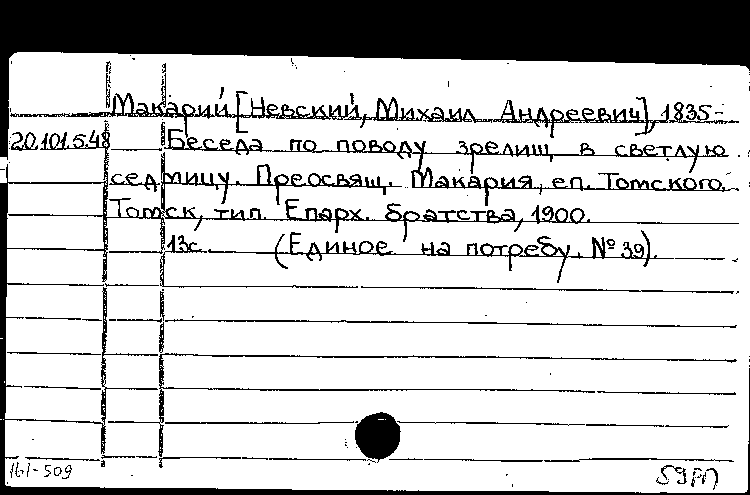 Макарий [Невский, Михаил Андреевич], 1835-
20.101.5.48 Беседа по поводу зрелищ в светлую
седмицу. Преосвящ. Макария, еп. Томского.
Томск, тип. Епарх. братства, 1900.
13с. (Единое на потребу. № 39).
161-509